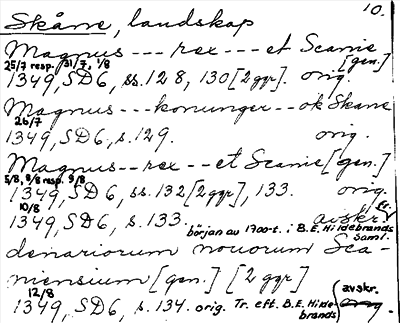 10.
Skåne, landskap
Magnus --- rex -- et Scanie
[gen.]
25/7 resp. 31/7, 1/8
1349, SD6, ss. 128, 130 [2ggr]. orig.
Magnus --- konunger -- ok Skane
26/7
1349, SD6, s. 129. orig.
Magnus -- rex -- et Scanie [gen.]
5/8, 8/8 resp. 9/8
1349, SD6, ss. 132 [2ggr], 133. orig.
10/8
1349, SD6, s. 133. avskr. fr.
början av 1700-t. i B.E. Hildebrands
saml.
denariorum nouorum Sca-
niensium [gen.] [2 ggr]
12/8
1349, SD6, s. 134. orig. Tr. eft. B.E. Hilde-
brands
avskr.